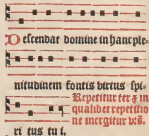 Descendat domine in hanc ple-
nitudinem fontis virtus spi-
Repetitur ter &̃ in
qualibet repetitio
ne incipitur
ri tus tu i.